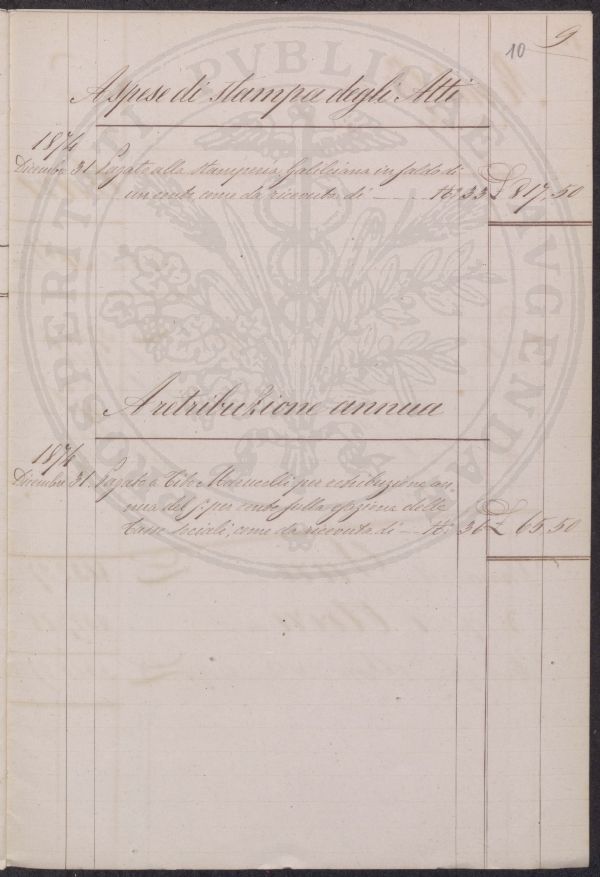 10 9
A spese di stampa degli Atti
1874
Dicembre 31. Pagate alla stamperia Galileiana in saldo di
un conto come da ricevuta di N.° 33 £ 817,50
A retribuzione annua
1874
Dicembre 31. Pagate a Tito Marucelli per retribuzione an
nua del 5. per cento sulla esazione delle
Tasse sociali, come da ricevuta di N.° 36 £ 65,50
PROSPERITATI PVBLICAE AVGENDAE